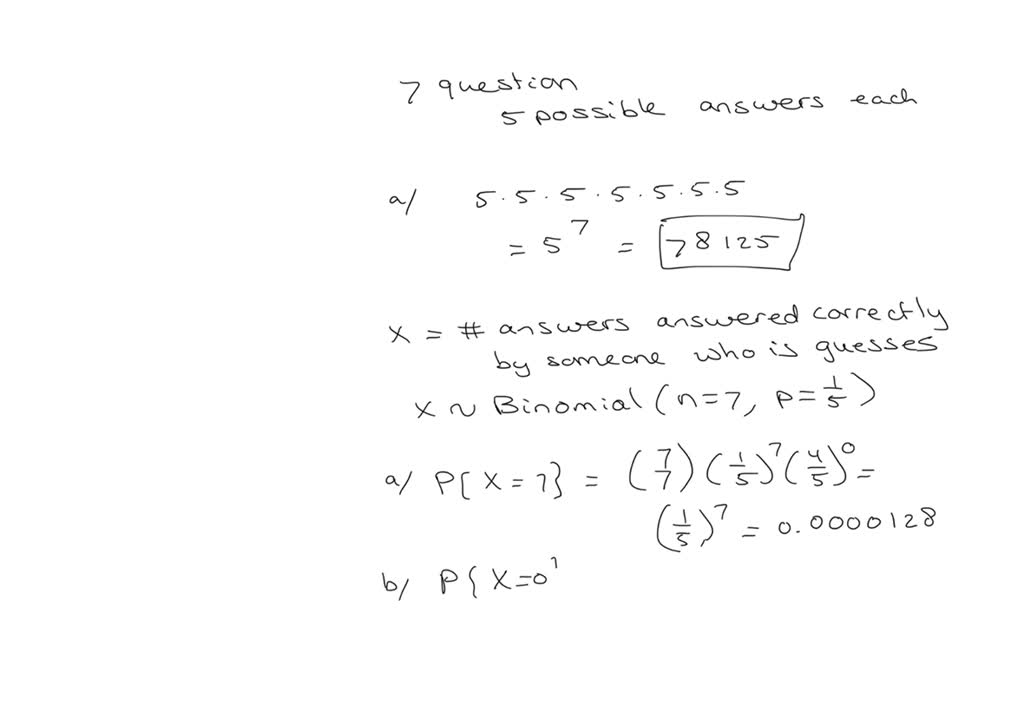 7 question
5 possible answers each
a/ 5.5.5.5.5.5.5
= 5^7 = 78125
X = # answers answered correctly
by someone who is guesses
X ~ Binomial (n=7, p=1/5)
a/ P{X=7} = (7/7)(1/5)^7(4/5)^0 =
(1/5)^7 = 0.0000128
b/ P{X=0